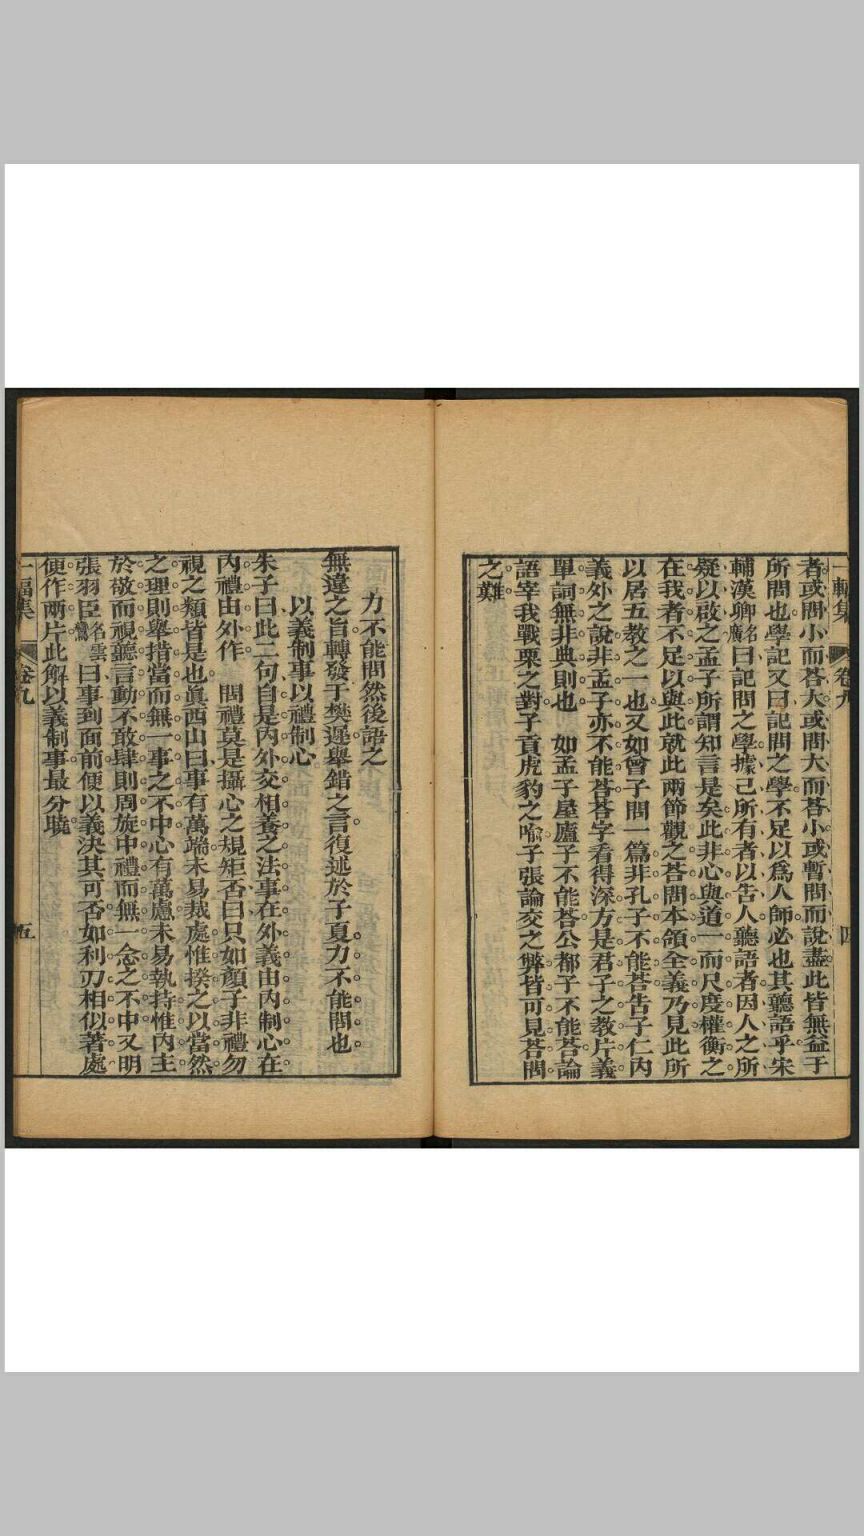 一輻集 卷九 四
者或問小而荅大或問大而荅小或暫問而說盡此皆無益于
所問也學記又曰記問之學不足以爲人師必也其聽語乎宋
輔漢卿名廣曰記問之學據己所有者以告人聽語者因人之所
疑以啟之孟子所謂知言是矣此非心與道一而尺度權衡之
在我者不足以與此就此兩節觀之荅問本領全義乃見此所
以居五教之一也又如曾子問一篇非孔子不能荅告子仁內
義外之說非孟子亦不能荅荅字看得深方是君子之教片義
單詞無非典則也 如孟子屋廬子不能荅公都子不能荅論
語宰我戰栗之對子貢虎豹之喻子張論交之弊皆可見荅問
之難
力不能問然後語之
無違之旨轉發于樊遲舉錯之言復述於子夏力不能問也
以義制事以禮制心
朱子曰此二句自是內外交相養之法事在外義由內制心在
內禮由外作 問禮莫是攝心之規矩否曰只如顏子非禮勿
視之類皆是也眞西山曰事有萬端未易裁處惟揆之以當然
之理則舉措當而無一事之不中心有萬慮未易執持惟內主
於敬而視聽言動不敢肆則周旋中禮而無一念之不中又明
張羽臣名雲鸞曰事到面前便以義決其可否如利刃相似著處
便作兩片此解以義制事最分曉
一輻集 卷九 五